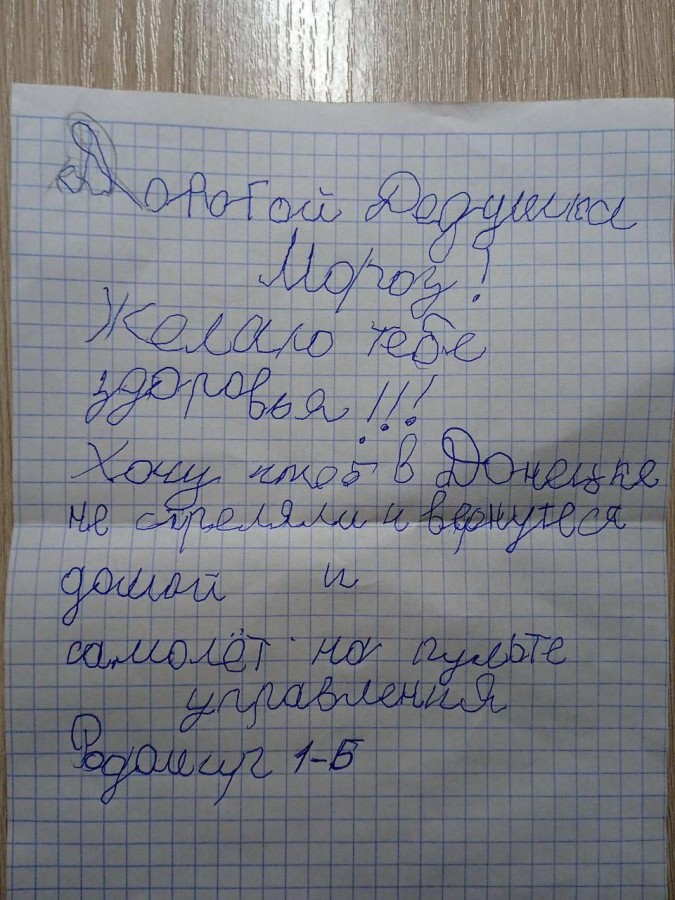 Дорогой Дедушка
Мороз!
Желаю тебе
здоровья!!!
Хочу чтоб в Донецке
не стреляли и вернутеся
домой и
самолёт на пульте
управления
1-Б